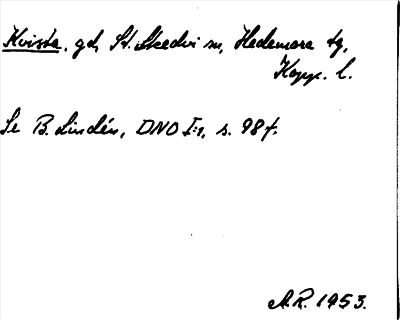 Kvista, gd, St. Skedvi sn, Hedemora tg,
Kopp. l.
Se B. Lindén, DNO I:1, s. 98 f.
A.R. 1953.